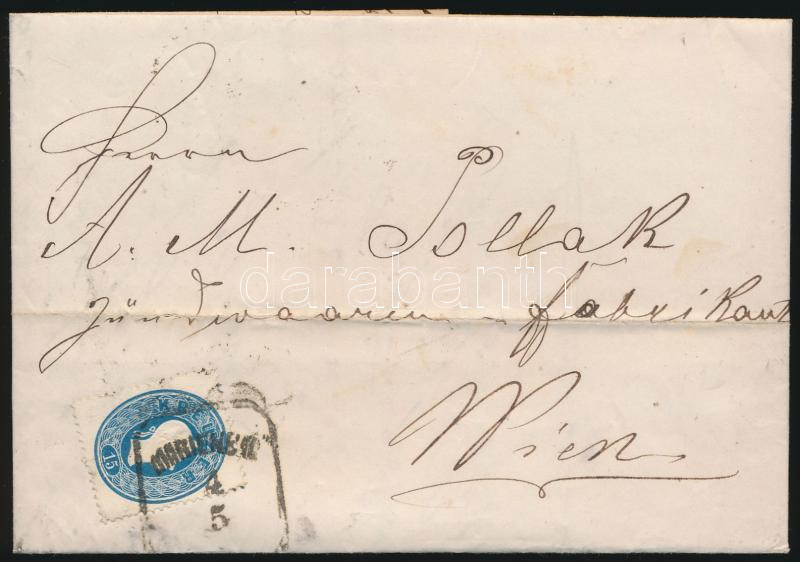 Herrn
A. M. Pollak
Zündwaaren-fabrikant
darabanth
Wien
KREUZER
15
4
5